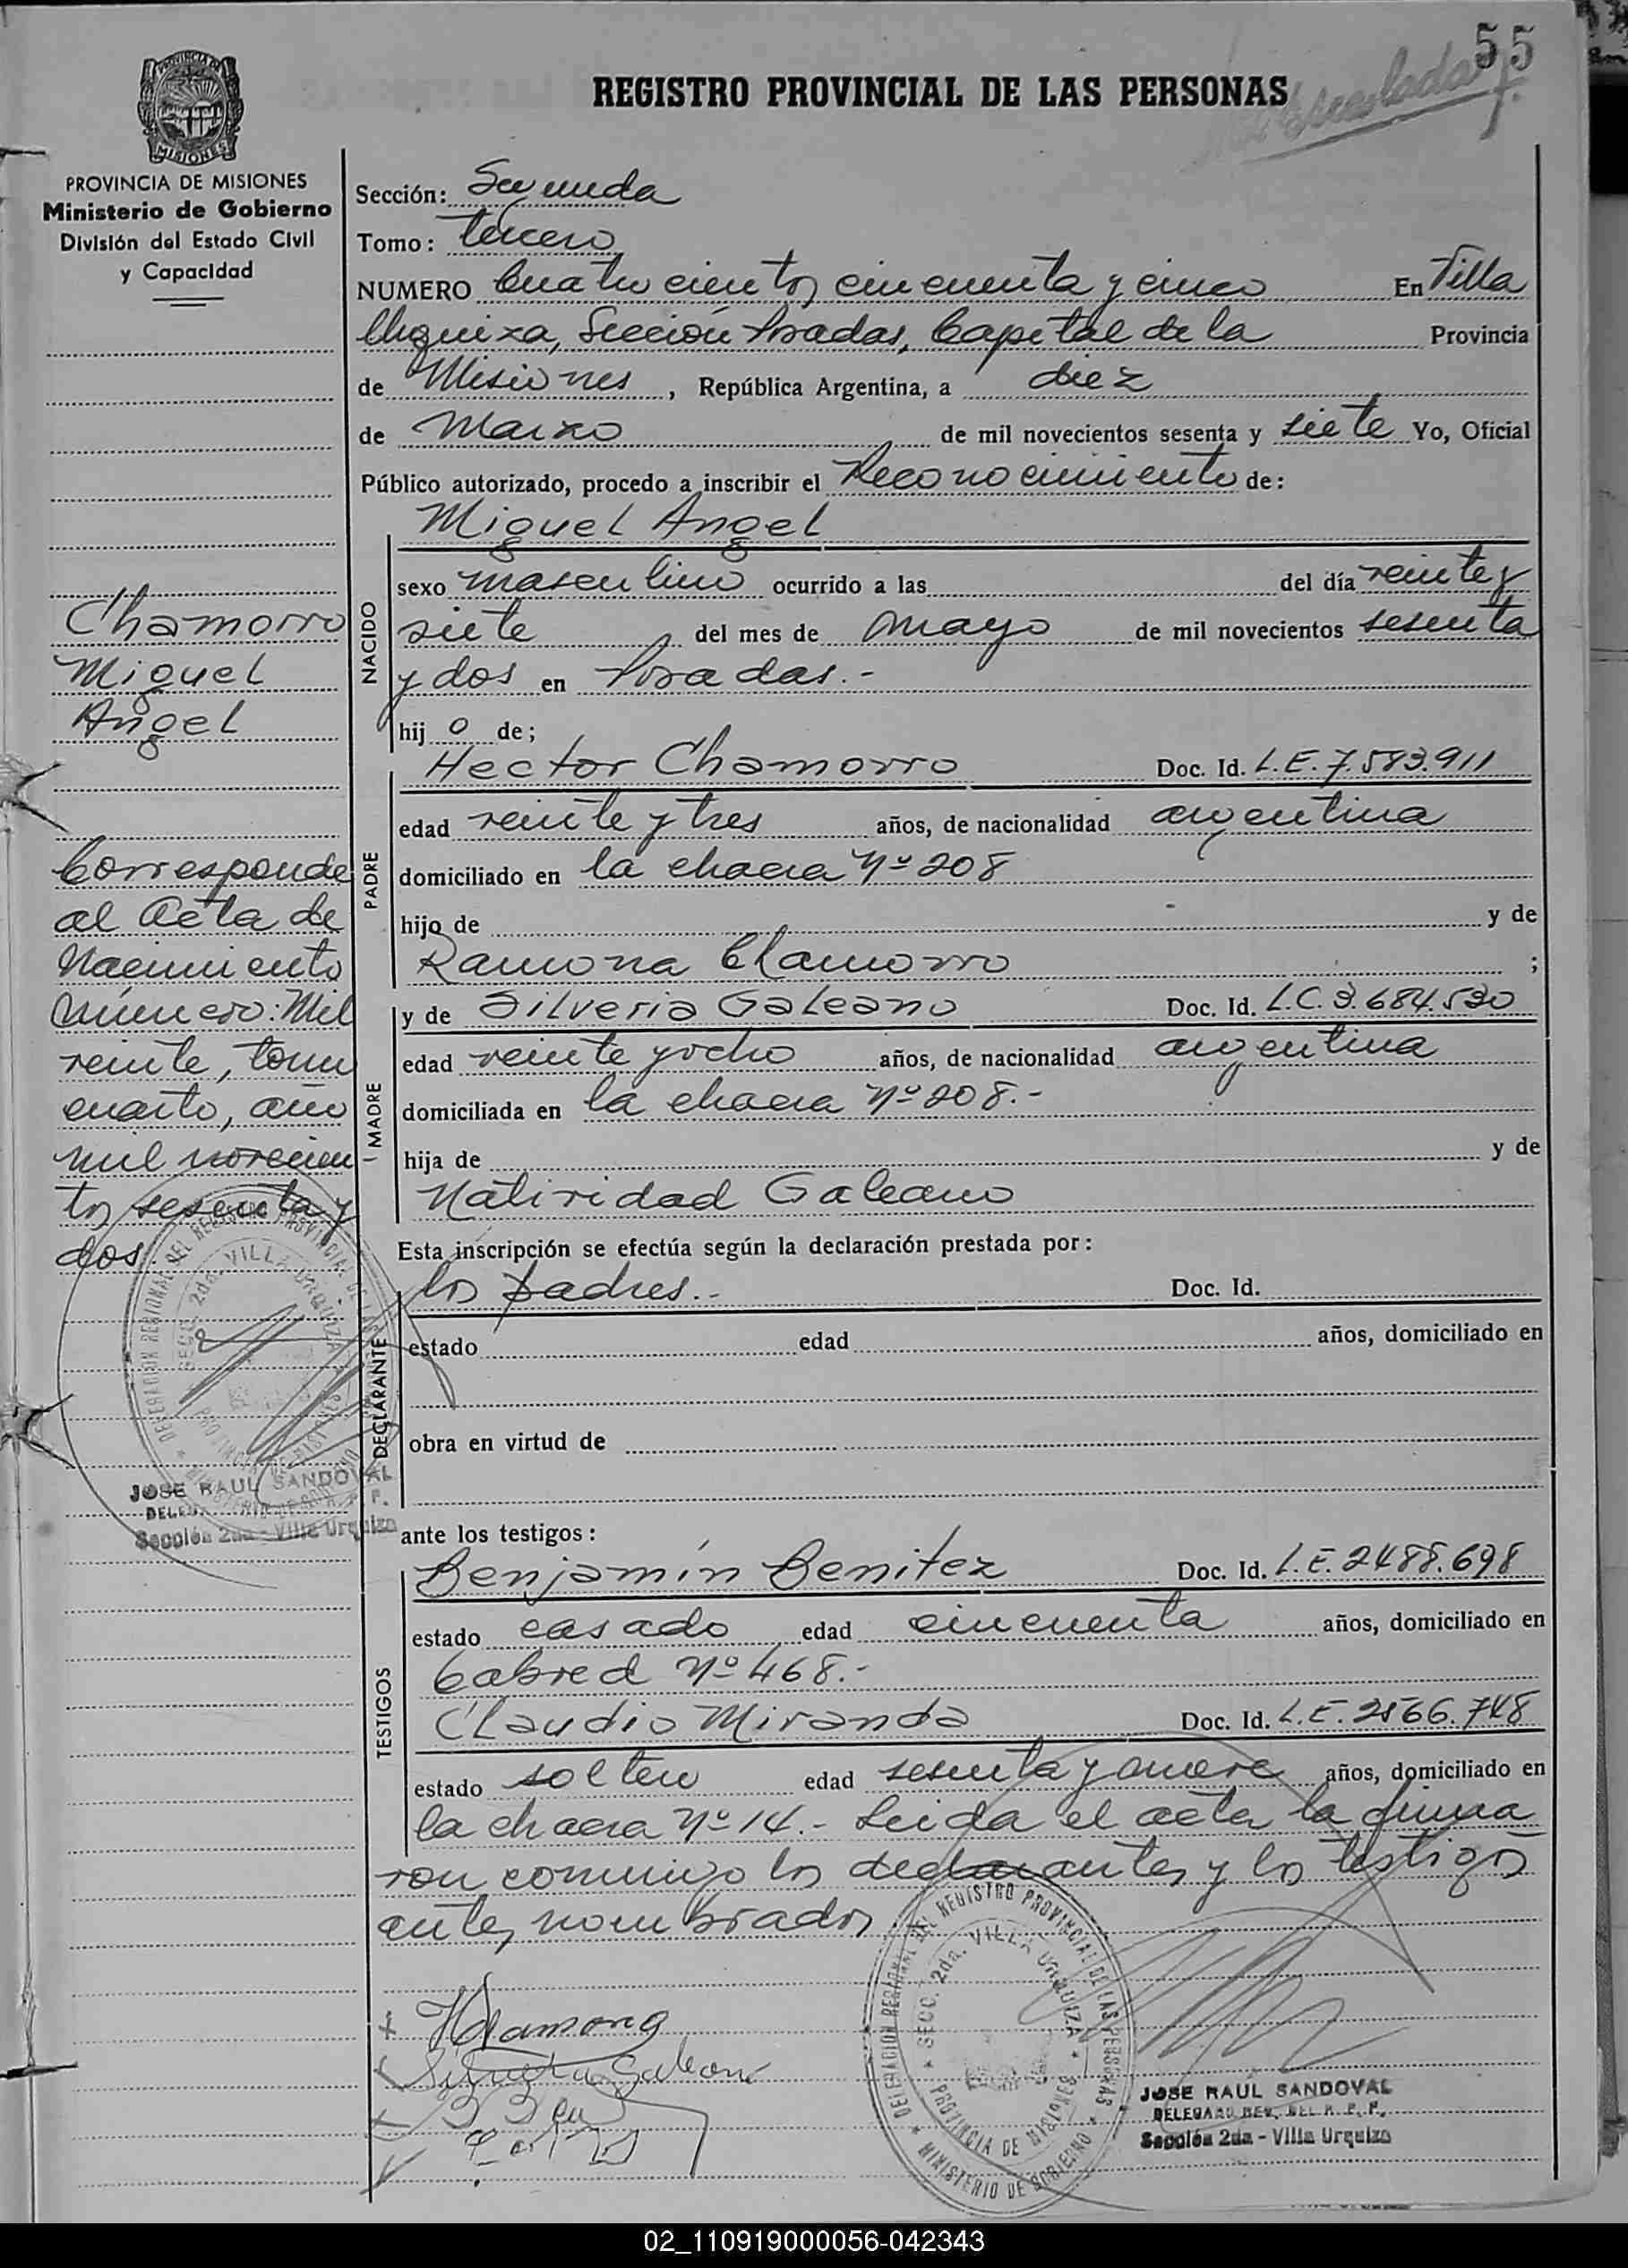 55
REGISTRO PROVINCIAL DE LAS PERSONAS
PROVINCIA DE MISIONES
Ministerio de Gobierno
División del Estado Civil
y Capacidad
Sección: Segunda
Tomo: tercero
NUMERO Cuatrocientos cincuenta y cinco En Villa
Urquiza, Sección Posadas, Capital de la Provincia
de Misiones, República Argentina, a diez
de Marzo de mil novecientos sesenta y siete Yo, Oficial
Público autorizado, procedo a inscribir el Reconocimiento de:
Miguel Angel
NACIDO
sexo masculino ocurrido a las del día veinte y
siete del mes de mayo de mil novecientos sesenta
y dos en Posadas.-
hijo de;
Chamorro
Miguel
Angel
PADRE
Hector Chamorro Doc. Id. L.E. 7.583.911
edad veinte y tres años, de nacionalidad argentina
domiciliado en la chacra Nº 208
hijo de y de
Ramona Chamorro ;
MADRE
y de Silveria Galeano Doc. Id. L.C. 3.684.530
edad veinte y ocho años, de nacionalidad argentina
domiciliada en la chacra Nº 208.-
hija de y de
Natividad Galeano
Corresponde
al Acta de
Nacimiento
número: Mil
veinte, tomo
cuarto, año
mil novecien
tos sesenta y
dos.
Esta inscripción se efectúa según la declaración prestada por:
los padres.- Doc. Id.
DECLARANTE
estado edad años, domiciliado en
obra en virtud de
DELEGACION REGIONAL DEL REGISTRO PROVINCIAL DE LAS
SECC. 2da. VILLA URQUIZA
JOSE RAUL SANDOVAL
Sección 2da - Villa Urquiza
ante los testigos:
TESTIGOS
Benjamín Benitez Doc. Id. L.E. 2488.698
estado casado edad cincuenta años, domiciliado en
Cabred Nº 468.-
Claudio Miranda Doc. Id. L.E. 2566.748
estado soltero edad sesenta y nueve años, domiciliado en
la chacra Nº 14.- Leida el acta la firma
ron conmigo los declarantes y los testigos
antes nombrados
DELEGACION REGIONAL DEL REGISTRO PROVINCIAL DE LAS PERSONAS
SECC. 2da. VILLA URQUIZA
PROVINCIA DE MISIONES
MINISTERIO DE GOBIERNO
JOSE RAUL SANDOVAL
DELEGADO REG. DEL R. P. P.
Sección 2da - Villa Urquiza
02_110919000056-042343